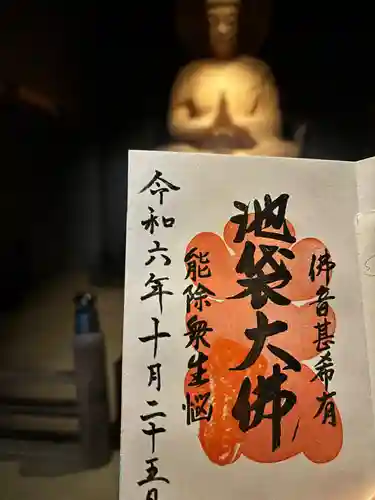 佛音甚希有
池袋大佛
能除衆生惱
令和六年十月二十五日